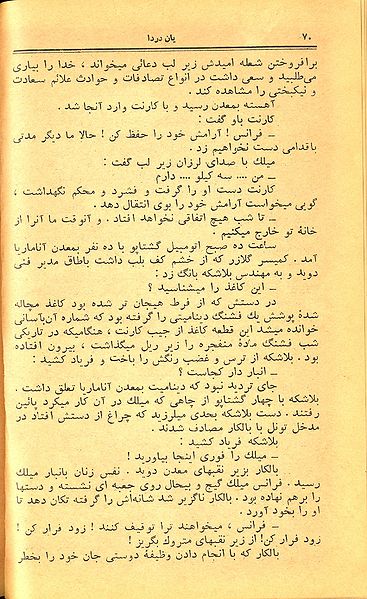 ۷۰
یان دردا
برافروختن شعله امیدش زیر لب دعائی میخواند ، خدا را بیاری
می‌طلبید و سعی داشت در انواع تصادفات و حوادث علائم سعادت
و نیکبختی را مشاهده کند .
آهسته بمعدن رسید و با کارنت وارد آنجا شد .
کارنت باو گفت :
ــ فرانس ! آرامش خود را حفظ کن ! حالا ما دیگر مدتی
باقدامی دست نخواهیم زد .
میلك با صدای لرزان زیر لب گفت :
ــ من .... سه کیلو .... دارم
کارنت دست او را گرفت و فشرد و محکم نگهداشت ،
گویی میخواست آرامش خود را بوی انتقال دهد .
ــ تا شب هیچ اتفاقی نخواهد افتاد . و آنوقت ما آنرا از
خانهٔ تو خارج میکنیم .
ساعت ده صبح اتومبیل گشتاپو با ده نفر بمعدن آناماریا
آمد . کمیسر گلازر که از خشم کف بلب داشت باطاق مدیر فنی
دوید و به مهندس بلاشکه بانگ زد :
ــ این کاغذ را میشناسید ؟
در دستش که از فرط هیجان تر شده بود کاغذ مچاله
شدهٔ پوشش یك فشنگ دینامیتی را گرفته بود که شماره آن‌باسانی
خوانده میشد این قطعه کاغذ از جیب کارنت ، هنگامیکه در تاریکی
شب فشنگ مادهٔ منفجره را زیر ریل میگذاشت ، بیرون افتاده
بود . بلاشکه از ترس و غضب رنگش را باخت و فریاد کشید :
ــ انبار دار کجاست ؟
جای تردید نبود که دینامیت بمعدن آناماریا تعلق داشت .
بلاشکه با چهار گشتاپو از چاهی که میلك در آن کار میکرد پائین
رفتند . دست بلاشکه بحدی میلرزید که چراغ از دستش افتاد در
مدخل تونل با بالکار مصادف شدند .
بلاشکه فریاد کشید :
ــ میلك را فوری اینجا بیاورید !
بالکار بزیر نقبهای معدن دوید . نفس زنان بانبار میلك
رسید . فرانس میلك گیج و بیحال روی جعبه ای نشسته و دستها
را برهم نهاده بود . بالکار ناگزیر شد شانه‌اش را گرفته تکان دهد تا
او را بخود آورد .
ــ فرانس ، میخواهند ترا توقیف کنند ! زود فرار کن !
زود فرار کن! از زیر نقبهای متروك بگریز !
بالکار که با انجام دادن وظیفهٔ دوستی جان خود را بخطر